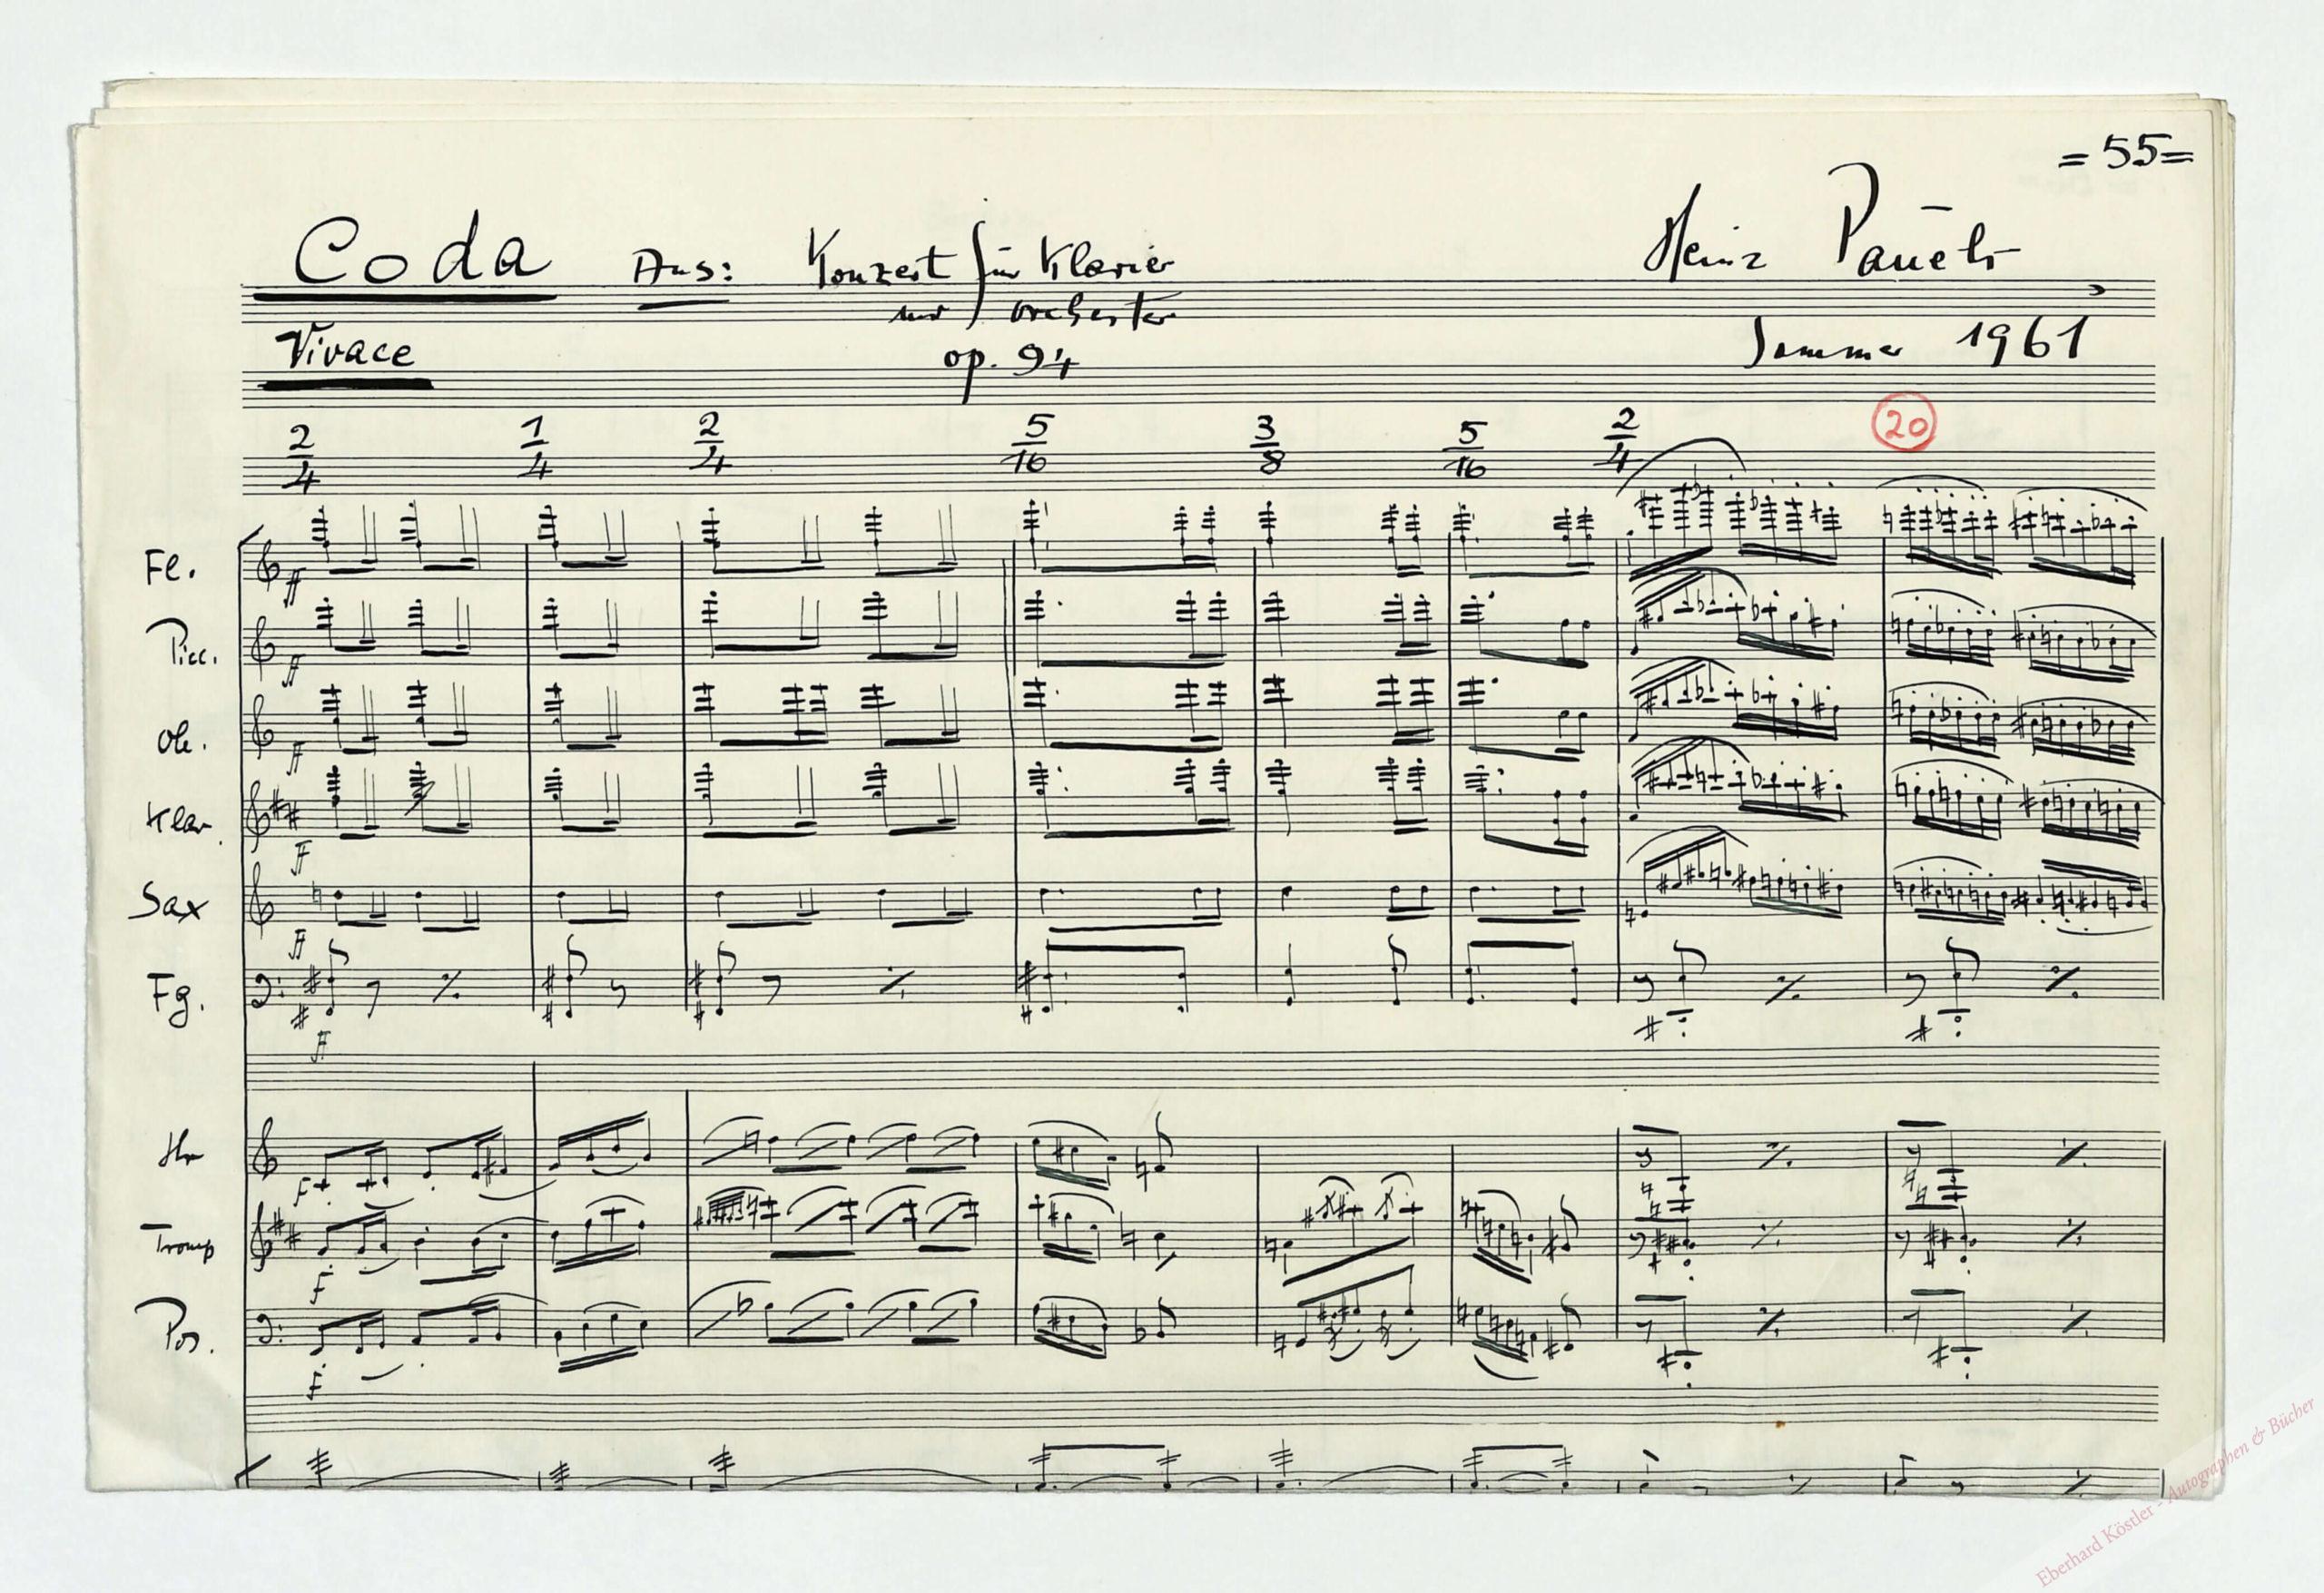 = 55 =
Coda Aus: Konzert für Klavier Heinz Pauels
und Orchester
Vivace op. 94 Sommer 1961
20
2/4 1/4 2/4 5/16 3/8 5/16 2/4
Fl.
ff
Picc.
ff
Ob.
ff
Klar.
ff
Sax
ff
Fg.
ff
Hr
f
Tromp
f
Pos.
f
Eberhard Köstler - Autographen & Bücher